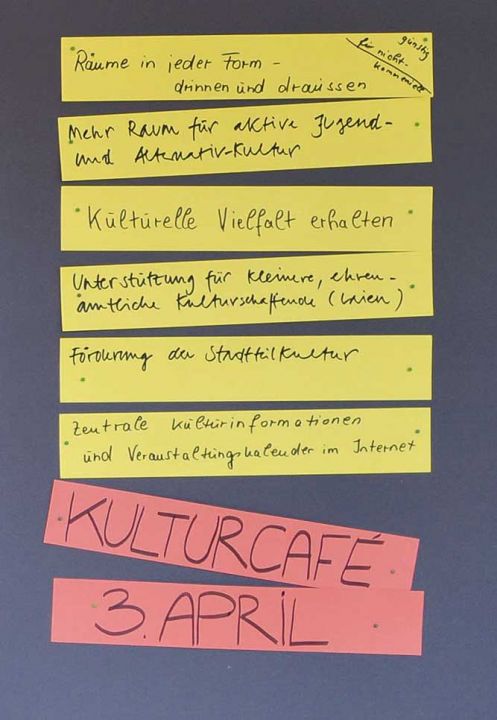 Räume in jeder Form -
drinnen und draussen
günstig
für nicht-
kommerziell
Mehr Raum für aktive Jugend-
und Alternativ-Kultur
Kulturelle Vielfalt erhalten
Unterstützung für kleinere, ehren-
amtliche Kulturschaffende (Laien)
Förderung der Stadtteilkultur
Zentrale Kulturinformationen
und Veranstaltungskalender im Internet
KULTURCAFÉ
3. APRIL